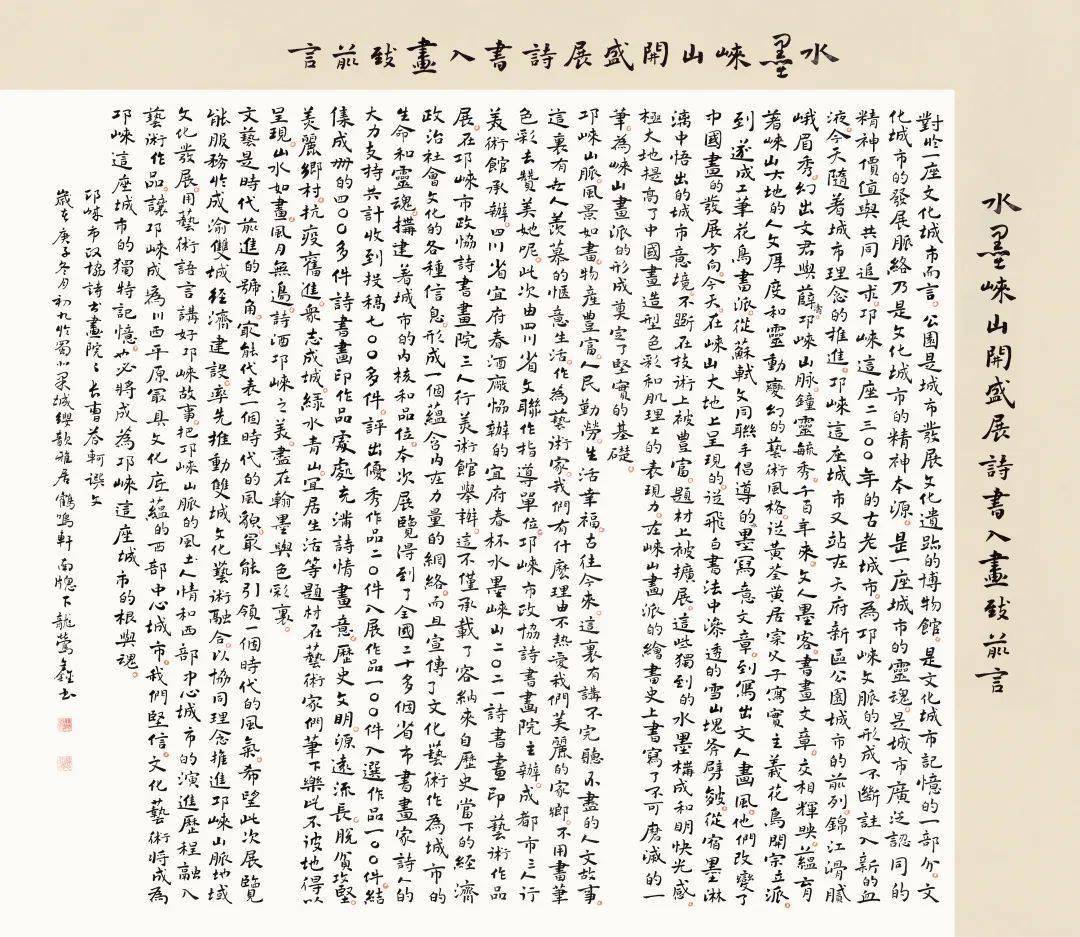 水墨崍山開盛展詩書入畫致前言
水墨崍山開盛展詩書入畫致前言
對於一座文化城市而言。公園是城市發展文化遺跡的博物館。是文化城市記憶的一部分。文
化城市的發展脈絡乃是文化城市的精神本源。是一座城市的靈魂。是城市廣泛認同的
精神價值與共同追求。邛崍這座二三〇〇年的古老城市。為邛崍文脈的形成不斷註入新的血
液。今天隨著城市理念的推進。邛崍這座城市又站在天府新區公園城市的前列。錦江滑膩
峨眉秀。幻出文君與薛濤。邛崍山脈。鐘靈毓秀。千百年來。文人墨客。書畫文章。交相輝映。蘊育
著崍山大地的人文厚度和靈動變幻的藝術風格。從黃荃黃居寀父子寫實主義花鳥開宗立派
到。遂成工筆花鳥書派。從蘇軾文同聯手倡導的墨寫意文章。到寫出文人畫風。他們改變了
中國畫的發展方向。今天。在崍山大地上呈現的。從飛白書法中滲透的雪山塊斧劈皴。從宿墨淋
漓中悟出的城市意境。不斷在技術上被豐富。題材上被擴展。這些獨到的水墨構成和明快光感。
極大地提高了中國畫造型色彩和肌理上的表現力。在崍山畫派的繪畫史上書寫了不可磨滅的一
筆。為崍山畫派的形成奠定了堅實的基礎。
邛崍山脈。風景如畫。物產豐富。人民勤勞。生活幸福。古往今來。這裏有講不完聽不盡的人文故事。
這裏有世人羨慕的愜意生活。作為藝術家。我們有什麼理由不熱愛我們美麗的家鄉。不用書筆
色彩去贊美她呢。此次由四川省文聯作指導單位。邛崍市政協詩書畫院主辦。成都市三人行
美術館承辦。四川省宜府春酒廠協辦的宜府春杯水墨崍山二〇二一詩書畫印藝術作品
展。在邛崍市政協詩書畫院三人行美術館舉辦。這不僅承載了容納來自歷史當下的經濟
政治社會文化的各種信息。形成一個蘊含內在力量的網絡。而且宣傳了文化藝術作為城市的
生命和靈魂。構建著城市的內核和品位。本次展覽得到了全國二十多個省市書畫家詩人的
大力支持。共計收到投稿七〇〇多件。評出優秀作品二〇件。入展作品一〇〇件。入選作品一〇〇件。結
集成冊的四〇〇多件詩書畫印作品。處處充滿詩情畫意。歷史文明。源遠流長。脫貧攻堅。
美麗鄉村。抗疫奮進。衆志成城。綠水青山。宜居生活等題材在藝術家們筆下樂此不疲地得以
呈現。山水如畫。風月無邊。詩酒邛崍之美。盡在翰墨與色彩裏。
文藝是時代前進的號角。最能代表一個時代的風貌。最能引領一個時代的風氣。希望此次展覽
能服務於成渝雙城經濟建設。率先推動雙城文化藝術融合。以協同理念推進邛崍山脈地域
文化發展。用藝術語言講好邛崍故事。把邛崍山脈的風土人情和西部中心城市的演進歷程融入
藝術作品。讓邛崍成為川西平原最具文化底蘊的西部中心城市。我們堅信。文化藝術將成為
邛崍這座城市的獨特記憶。也必將成為邛崍這座城市的根與魂。
邛崍市政協詩書畫院院長曹蓉軻撰文
歲在庚子冬月初九於蜀都